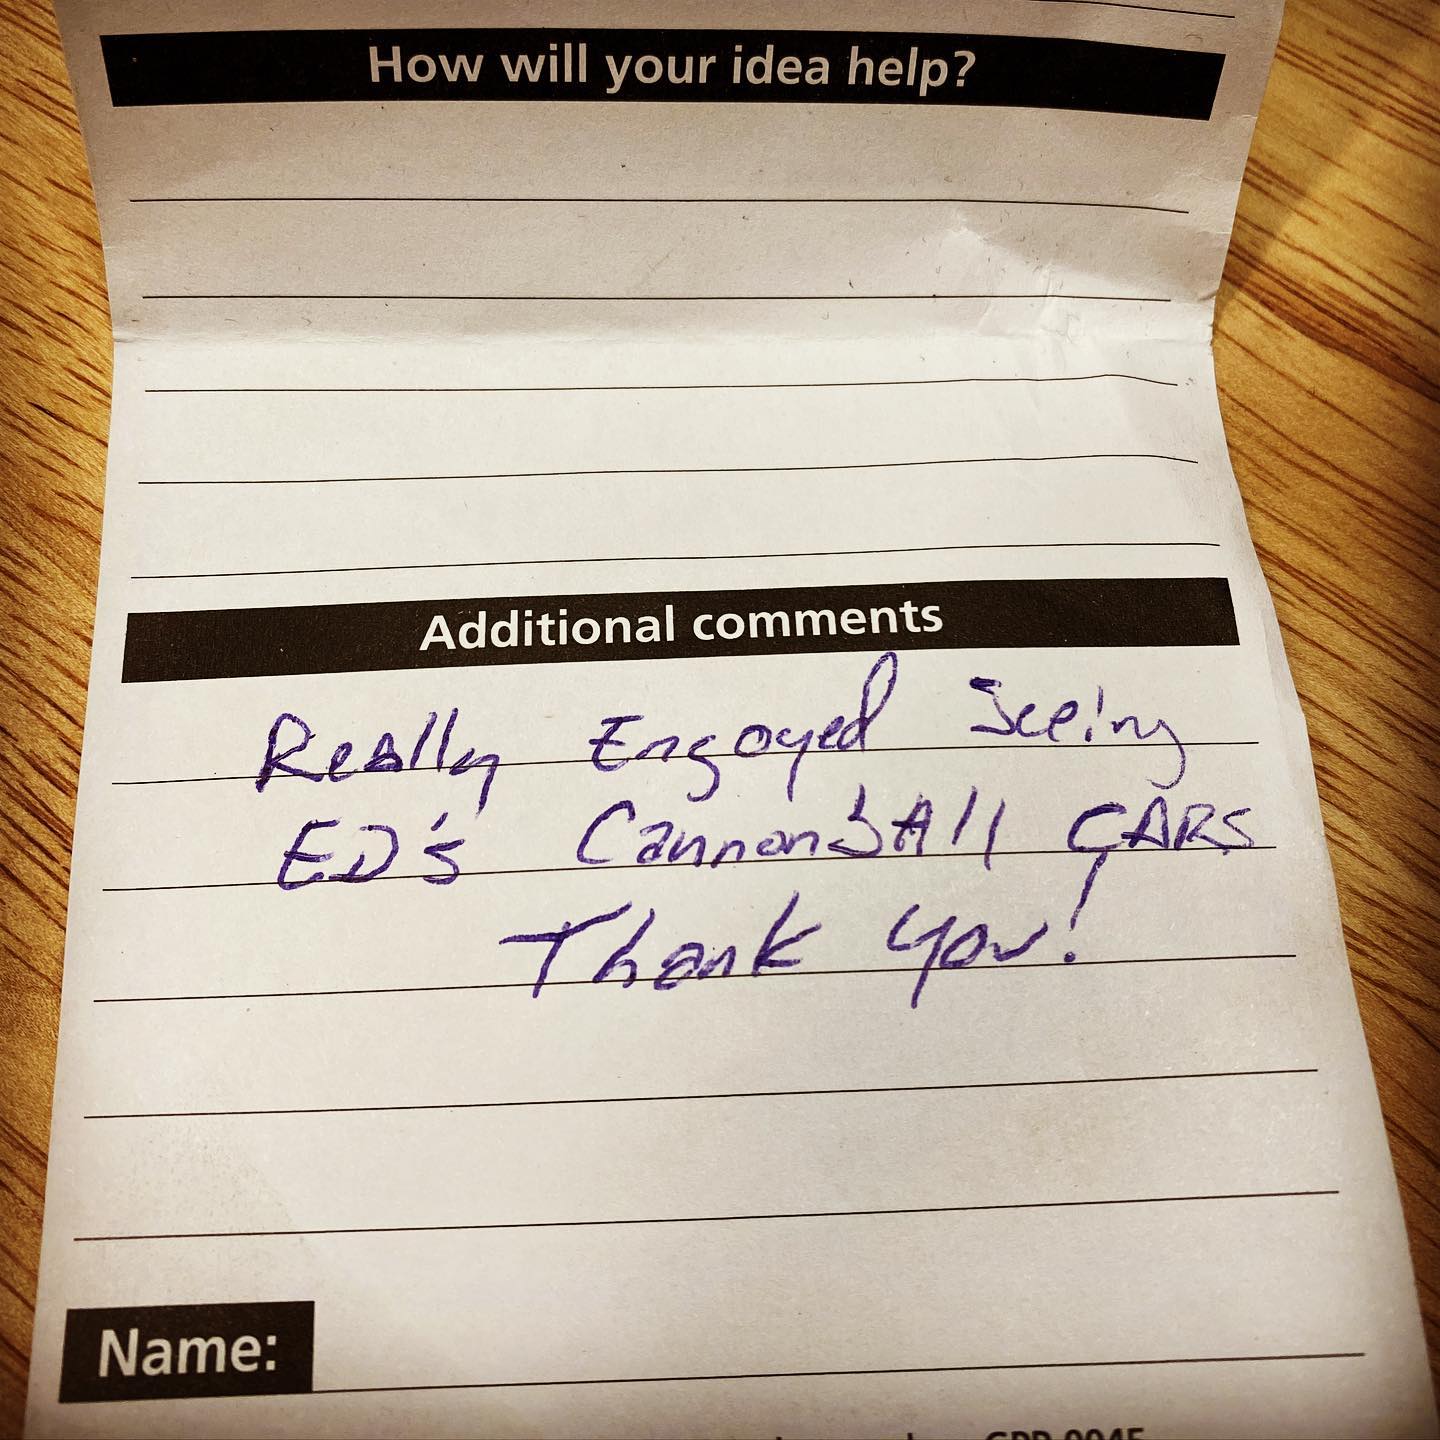 How will your idea help?
Additional comments
Really Engoyed Seeing
ED's CannonBAll CARS
Thank you!
Name: